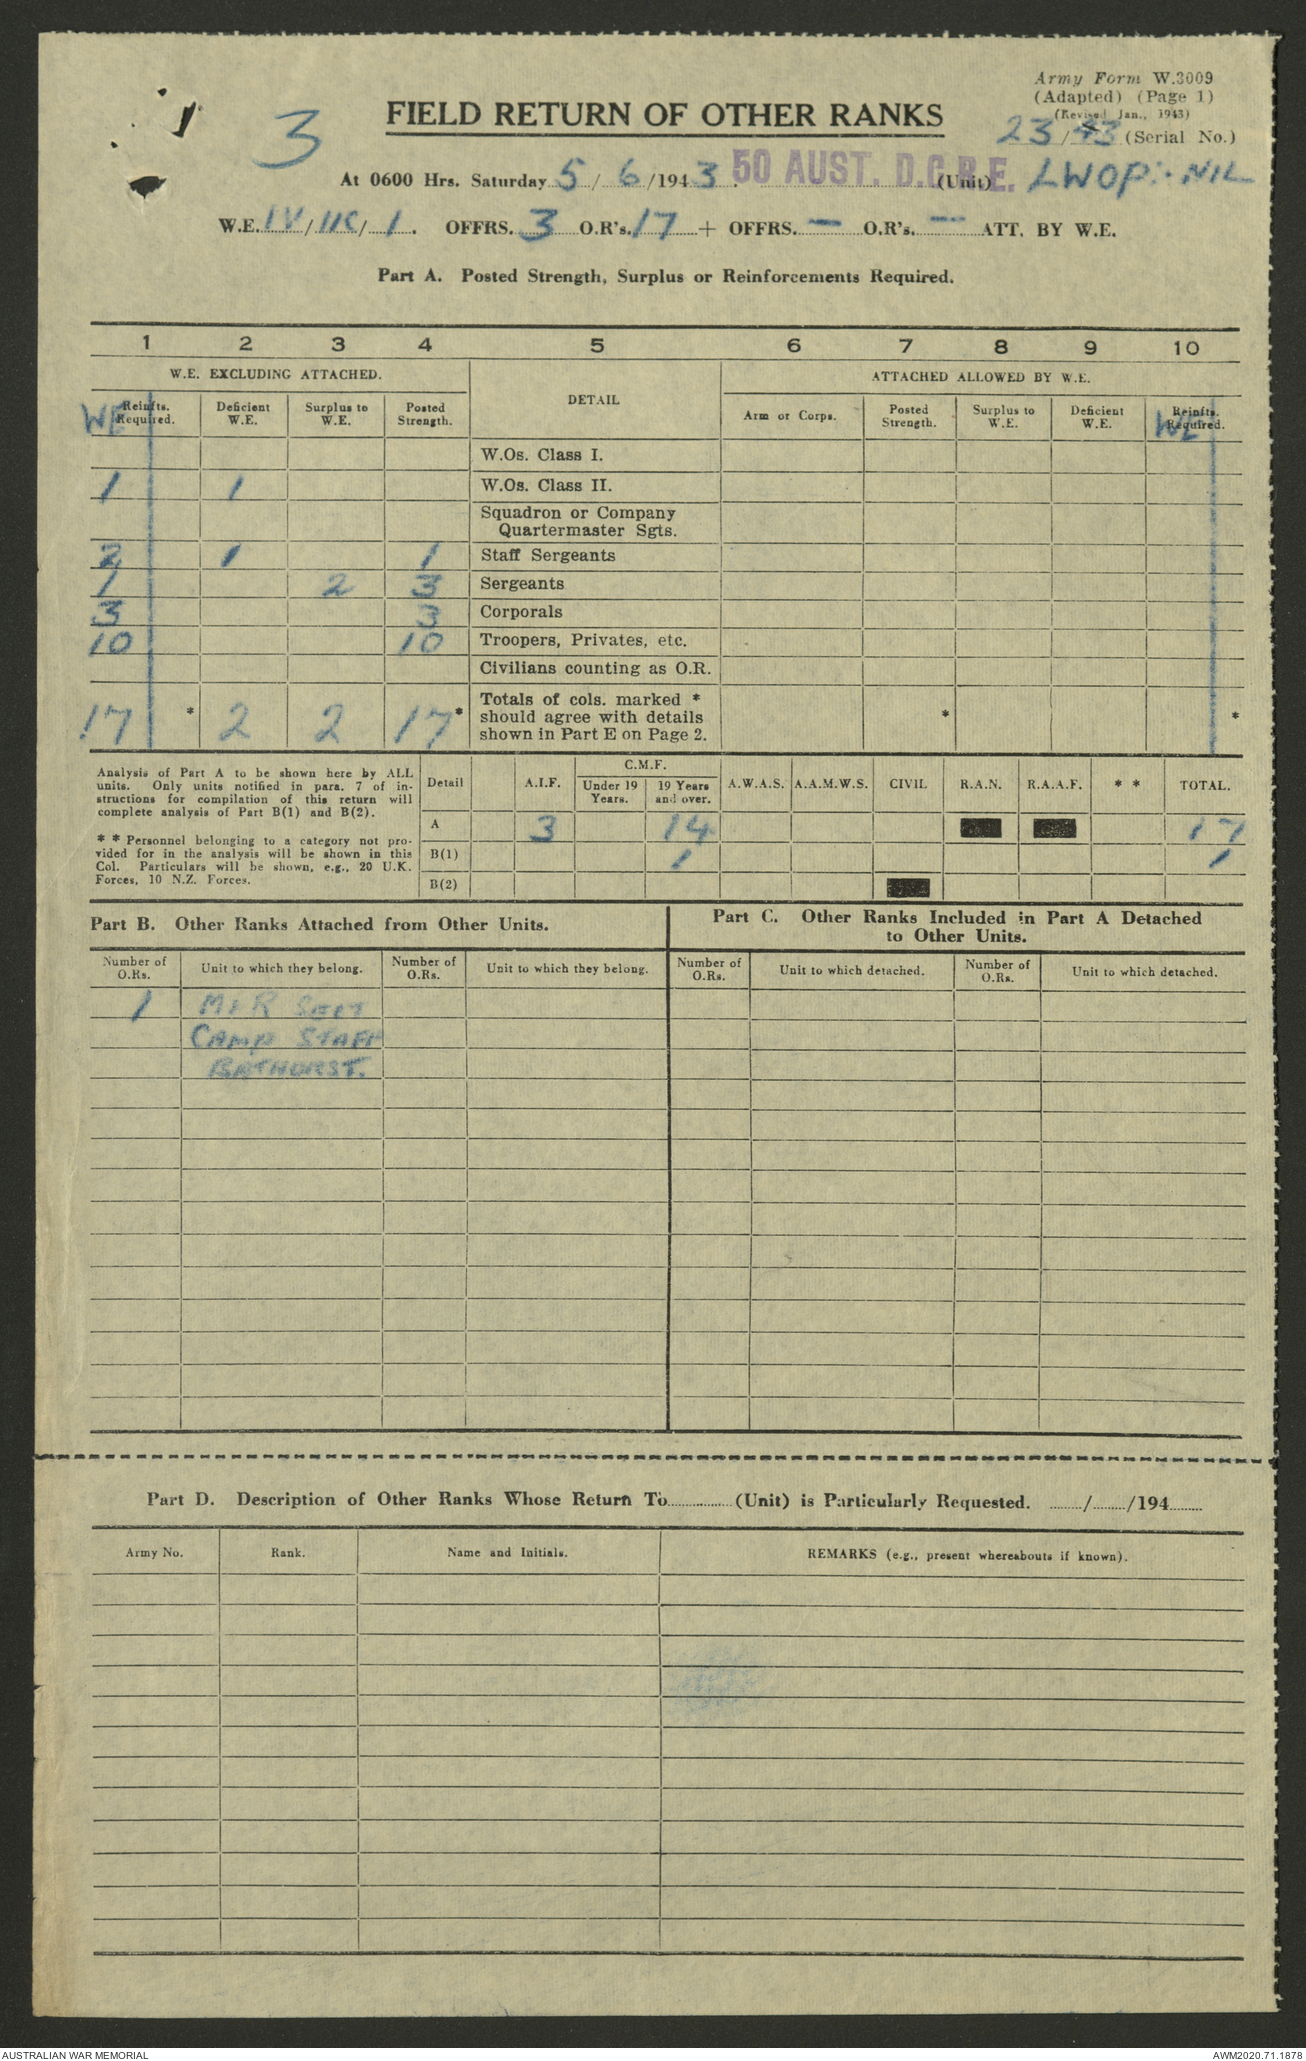 Army Form W.3009
(Adapted) (Page 1)
(Revised Jan., 1943)
3
FIELD RETURN OF OTHER RANKS
23/43 (Serial No.)
At 0600 Hrs. Saturday 5/6/1943. 50 AUST. D.C.R.E. (Unit) LWOP:- NIL
W.E. IV/11C/1. OFFRS. 3 O.R's. 17 + OFFRS. — O.R's. — ATT. BY W.E.
Part A. Posted Strength, Surplus or Reinforcements Required.
1 2 3 4 5 6 7 8 9 10
W.E. EXCLUDING ATTACHED. DETAIL ATTACHED ALLOWED BY W.E.
WE Reinfts. Required. Deficient W.E. Surplus to W.E. Posted Strength. Arm or Corps. Posted Strength. Surplus to W.E. Deficient W.E. WE Reinfts. Required.
W.Os. Class I.
1 1 W.Os. Class II.
Squadron or Company
Quartermaster Sgts.
2 1 1 Staff Sergeants
1 2 3 Sergeants
3 3 Corporals
10 10 Troopers, Privates, etc.
Civilians counting as O.R.
17 * 2 2 17 * Totals of cols. marked * * *
should agree with details
shown in Part E on Page 2.
Analysis of Part A to be shown here by ALL
units. Only units notified in para. 7 of in-
structions for compilation of this return will
complete analysis of Part B(1) and B(2).
* * Personnel belonging to a category not pro-
vided for in the analysis will be shown in this
Col. Particulars will be shown, e.g., 20 U.K.
Forces, 10 N.Z. Forces.
Detail A.I.F. C.M.F. Under 19 Years. 19 Years and over. A.W.A.S. A.A.M.W.S. CIVIL R.A.N. R.A.A.F. * * TOTAL.
A 3 14 17
B(1) 1 1
B(2)
Part B. Other Ranks Attached from Other Units.
Part C. Other Ranks Included in Part A Detached
to Other Units.
Number of O.Rs. Unit to which they belong. Number of O.Rs. Unit to which they belong. Number of O.Rs. Unit to which detached. Number of O.Rs. Unit to which detached.
1 M&R SECT
CAMP STAFF
BATHURST.
Part D. Description of Other Ranks Whose Return To............(Unit) is Particularly Requested. ......../......../194........
Army No. Rank. Name and Initials. REMARKS (e.g., present whereabouts if known).
AUSTRALIAN WAR MEMORIAL
AWM2020.71.1878